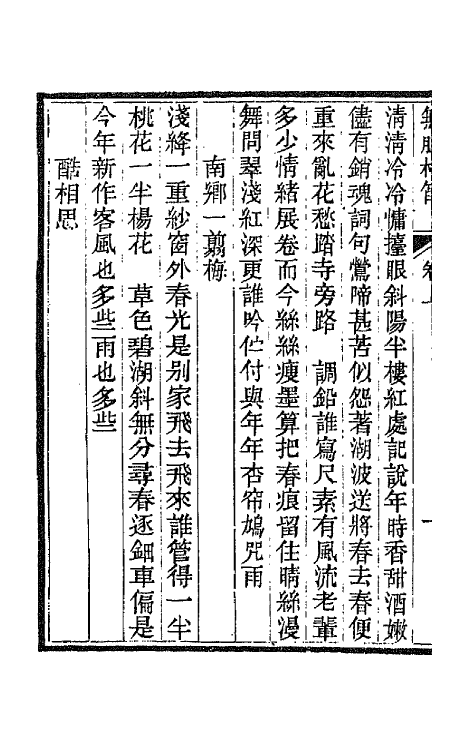 清清冷冷慵擡眼斜陽半樓紅處記說年時香甜酒嫩
儘有銷魂詞句鶯啼甚苦似怨著湖波送將春去春便
重來亂花愁踏寺旁路　調鉛誰寫尺素有風流老輩
多少情緒展卷而今絲絲瘦墨算把春痕留住晴絲漫
舞問翠淺紅深更誰吟伫付與年年杏帘鳩咒雨
南鄉一翦梅
淺絳一重紗窗外春光是別家飛去飛來誰管得一半
桃花一半楊花　草色碧湖斜無分尋春逐鈿車偏是
今年新作客風也多些雨也多些
酷相思